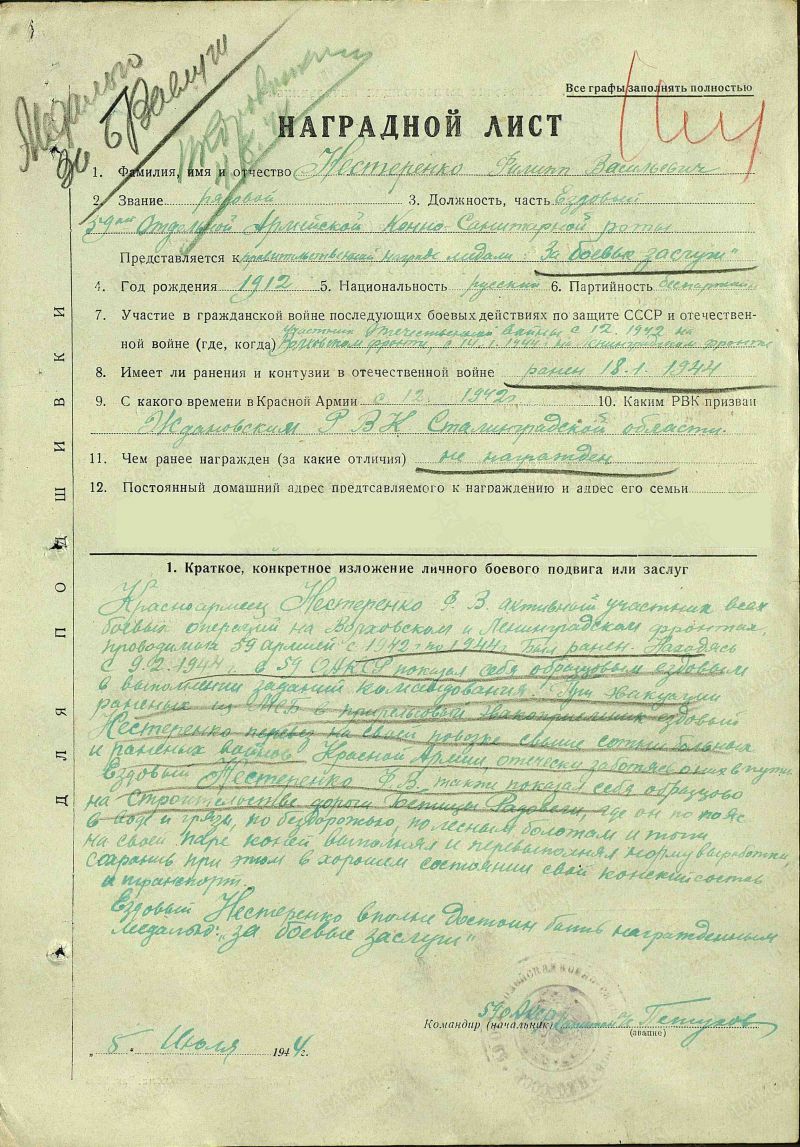 Медалью
За б Заслуги
Все графы заполнять полностью
НАГРАДНОЙ ЛИСТ
1. Фамилия, имя и отчество Нестеренко Филипп Васильевич
2. Звание рядовой 3. Должность, часть Ездовый
59 ой Отдельной Армейской Конно-Санитарной роты
Представляется к правительственной награде медали: "За боевые заслуги"
4. Год рождения 1912 5. Национальность русский 6. Партийность беспартийн
7. Участие в гражданской войне последующих боевых действиях по защите СССР и отечествен-
участник Отечественной войны с 12. 1942 на
ной войне (где, когда) Волховском фронте, с 14.1.1944 на Ленинградском фронте
8. Имеет ли ранения и контузии в отечественной войне ранен 18.1.1944
9. С какого времени в Красной Армии с 12. 1942г 10. Каким РВК призван
Ждановским РВК Сталинградской области.
11. Чем ранее награжден (за какие отличия) не награжден
12. Постоянный домашний адрес предтсавляемого к награждению и адрес его семьи
ДЛЯ ПОДШИВКИ
1. Краткое, конкретное изложение личного боевого подвига или заслуг
Красноармеец Нестеренко Ф. В. активный участник всех
боевых операций на Волховском и Ленинградском фронтах,
проводимых 59 армией с 1942 по 1944г. Был ранен. Находясь
с 9.2.1944г. в 59 ОАКСР показал себя образцовым ездовым
в выполнении заданий командования. При эвакуации
раненых из МСБ в прирельсовый эвакоприемник ездовый
Нестеренко перевез на своей повозке свыше сотни больных
и раненых воинов Красной Армии, отечески заботясь о них в пути
Ездовый Нестеренко Ф.В. также показал себя образцово
на строительстве дороги Радовежи, где он по пояс
в воде и грязи, по бездорожью, по лесным болотам и топи
на своей паре коней выполнял и перевыполнял норму выработки,
сохранив при этом в хорошем состоянии свой конский состав
и транспорт.
Ездовый Нестеренко вполне достоин быть награжденным
Медалью: "за боевые заслуги"
59 ОАКСР
Командир (начальник) Петухов
(звание)
„ 5 " Июля 1944 г.